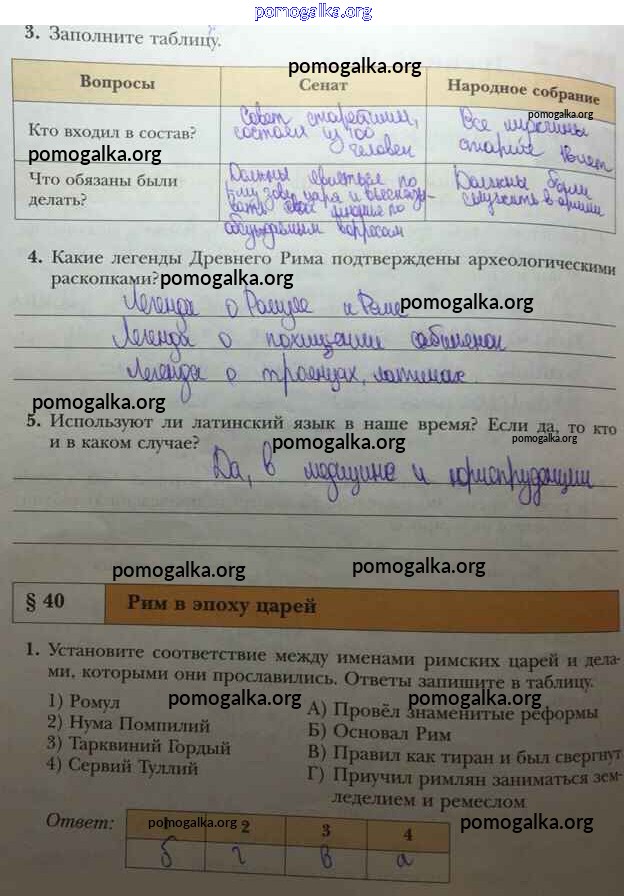 pomogalka.org
3. Заполните таблицу.
pomogalka.org
Вопросы Сенат Народное собрание
Кто входил в состав?
Совет старейшин,
состоял из 100
человек
pomogalka.org
Все мужчины
старше 16 лет
pomogalka.org
Что обязаны были
делать?
Должны явиться по
зову царя и высказы-
вать свое мнение по
обсуждаемым вопросам
Должны были
служить в армии
4. Какие легенды Древнего Рима подтверждены археологическими
раскопками? pomogalka.org
Легенда о Ромуле и Реме pomogalka.org
Легенда о похищении сабинянок
Легенда о троянцах, латинах
pomogalka.org
5. Используют ли латинский язык в наше время? Если да, то кто
и в каком случае? pomogalka.org pomogalka.org
Да, в медицине и юриспруденции
pomogalka.org pomogalka.org
§ 40 Рим в эпоху царей
1. Установите соответствие между именами римских царей и дела-
ми, которыми они прославились. Ответы запишите в таблицу.
pomogalka.org pomogalka.org
1) Ромул
2) Нума Помпилий
3) Тарквиний Гордый
4) Сервий Туллий
А) Провёл знаменитые реформы
Б) Основал Рим
В) Правил как тиран и был свергнут
Г) Приучил римлян заниматься зем-
леделием и ремеслом
Ответ: 1 2 3 4
pomogalka.org pomogalka.org
б г в а